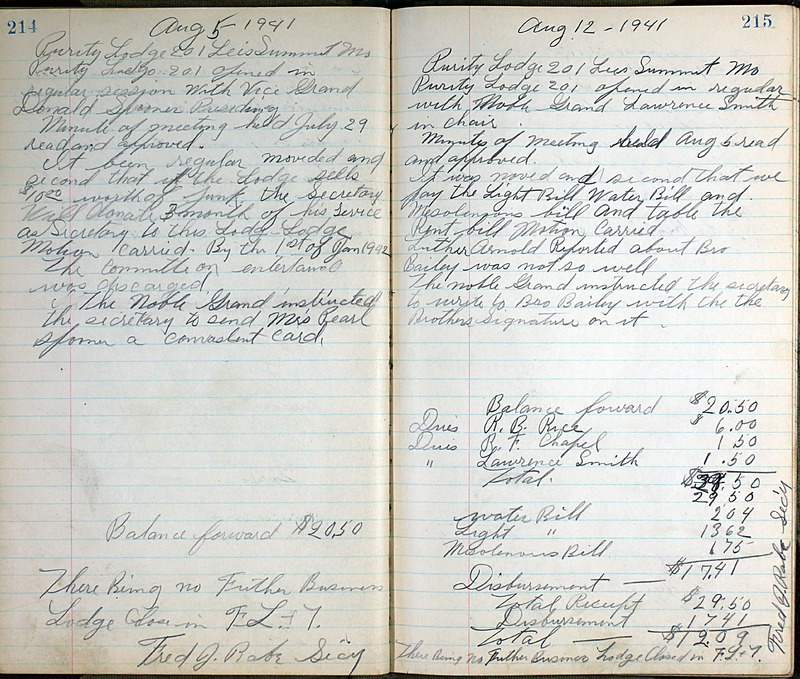 214
Aug 5 1941
Purity Lodge 201 Leis Summit Mo
Purity Lodge 201 opened in
regular session With Vice Grand
Donald Spooner Presiding
Minute of meeting held July 29
read and approved.
it been regular moveded and
second that if the Lodge sells
$10.00 worth of junk the Secretary
Will donate 3 month of his service
as Secretary to this Lodg Lodge
Motion carried. By the 1st of Jan 1942
The Committe on entertain
was discarged.
The Noble Grand instructed
the secretary to send Mrs Pearl
Spooner a card.
Balance forward $20.50
There Being no Futher Business
Lodge Close in F. L. & T.
Fred J. Rabe Sec'y
215
Aug 12 - 1941
Purity Lodge 201 Lees Summit Mo
Purity Lodge 201 opened in regular
with Noble Grand Lawrence Smith
in chair.
Minutes of Meeting held Aug 5 read
and approved.
it was moved and second that we
pay the Light Bill Water Bill and
Mesolenious bill and table the
Rent bill Motion Carried
Luther Arnold Reported about Bro
Bailey was not so well
The noble Grand instructed the secretary
to write to Bro Bailey with the the
Brothers Signature on it.
Balance forward $20.50
Dues R. B. Rice $6.00
Dues R. F. Chapel 1.50
" Lawrence Smith 1.50
Total. $ 50
29 50
Water Bill 204
Light " 1362
Mesolenous Bill 175
Disbursement — $17.41
Total Receipt $29.50
Disbursement 1741
Total — $1209
There Being no Futher Busines Lodge Closed in F. L. & T.
Fred J. Rabe Sec'y